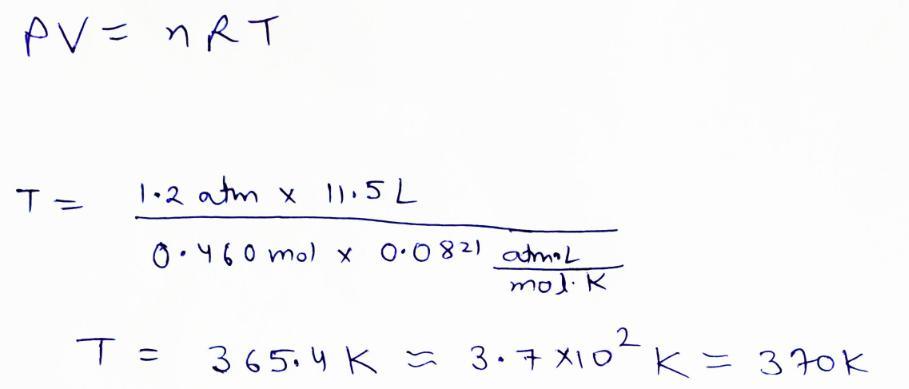 PV = nRT
T = 1.2 atm x 11.5 L
0.460 mol x 0.0821 atm·L
mol·K
T = 365.4 K ≈ 3.7 x10² K = 370K